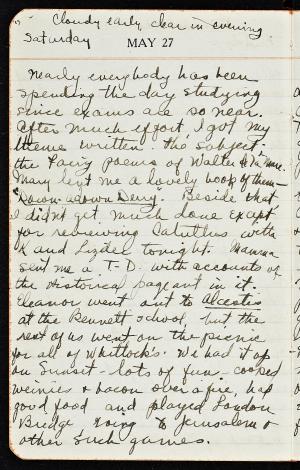 Cloudy early, clear in evening
Saturday
MAY 27
Nearly everybody has been
spending the day studying
since exams are so near.
After much effort, I got my
theme written the subject.
the Fairy poems of Walter de la Mare.
Mary lent me a lovely book of them—
"Down-adown Derry. Beside that
I didn't get much done except
for reviewing Catullus with
K and Lizdel tonight. Mamma
sent me a T-D. with accounts of
the Historical pageant in it.
Eleanor went out to Alcestis
at the Bennett School, but the
rest of us went on the picnic
for all of Whitlocks. We had it up
on Sunset - lots of fun - cooked
weinies & bacon over a fire, had
good food and played London
Bridge Going to Jerusalem &
other such games.